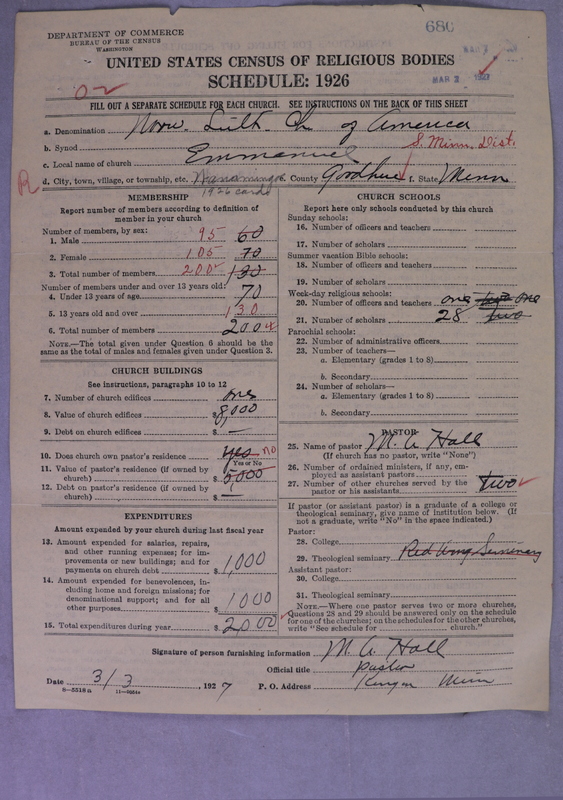 DEPARTMENT OF COMMERCE
BUREAU OF THE CENSUS
WASHINGTON
680
MAR 3 1927
UNITED STATES CENSUS OF RELIGIOUS BODIES
SCHEDULE: 1926
FILL OUT A SEPARATE SCHEDULE FOR EACH CHURCH. SEE INSTRUCTIONS ON THE BACK OF THIS SHEET
a. Denomination Norw. Luth. Ch. of America
b. Synod S. Minn. Dist.
c. Local name of church Emmanuel
d. City, town, village, or township, etc. Wanamingo e. County Goodhue f. State Minn
1926 cards
R
MEMBERSHIP
Report number of members according to definition of member in your church
Number of members, by sex:
1. Male 95 60
2. Female 105 70
3. Total number of members 200 130
Number of members under and over 13 years old:
4. Under 13 years of age 70
5. 13 years old and over 130
6. Total number of members 200
NOTE.—The total given under Question 6 should be the same as the total of males and females given under Question 3.
CHURCH BUILDINGS
See instructions, paragraphs 10 to 12
7. Number of church edifices one
8. Value of church edifices $ 8000
9. Debt on church edifices $ —
10. Does church own pastor's residence yes no
Yes or No
11. Value of pastor's residence (if owned by church) $ 5000
12. Debt on pastor's residence (if owned by church) $ —
EXPENDITURES
Amount expended by your church during last fiscal year
13. Amount expended for salaries, repairs, and other running expenses; for improvements or new buildings; and for payments on church debt $ 1,000
14. Amount expended for benevolences, including home and foreign missions; for denominational support; and for all other purposes $ 1000
15. Total expenditures during year $ 2000
CHURCH SCHOOLS
Report here only schools conducted by this church
Sunday schools:
16. Number of officers and teachers
17. Number of scholars
Summer vacation Bible schools:
18. Number of officers and teachers
19. Number of scholars
Week-day religious schools:
20. Number of officers and teachers one one
21. Number of scholars 28 two
Parochial schools:
22. Number of administrative officers
23. Number of teachers—
a. Elementary (grades 1 to 8)
b. Secondary
24. Number of scholars—
a. Elementary (grades 1 to 8)
b. Secondary
PASTOR
25. Name of pastor M. A. Hall
(If church has no pastor, write "None")
26. Number of ordained ministers, if any, employed as assistant pastors
27. Number of other churches served by the pastor or his assistants two
If pastor (or assistant pastor) is a graduate of a college or theological seminary, give name of institution below. (If not a graduate, write "No" in the space indicated.)
Pastor:
28. College
29. Theological seminary Red Wing Seminary
Assistant pastor:
30. College
31. Theological seminary
NOTE.—Where one pastor serves two or more churches, Questions 28 and 29 should be answered only on the schedule for one of the churches; on the schedules for the other churches, write "See schedule for church."
Signature of person furnishing information M. A. Hall
Official title pastor
Date 3/3, 1927 P. O. Address Kenyon Minn
8—5518a